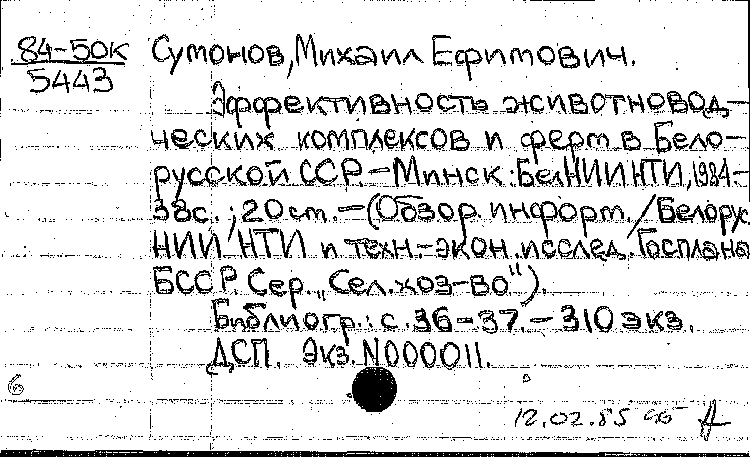 84-50к Сутонов, Михаил Ефимович.
5443
Эффективность животновод-
ческих комплексов и ферм в Бело-
русской ССР. — Минск: БелНИИНТИ, 1984-
38с.; 20 см. — (Обзор. информ. / Белорус.
НИИ НТИ и техн.-экон. исслед. Госплана
БССР. Сер. „Сел. хоз-во").
Библиогр.: с. 36-37. — 310 экз.
ДСП. Экз. N000011.
6
12.02.85